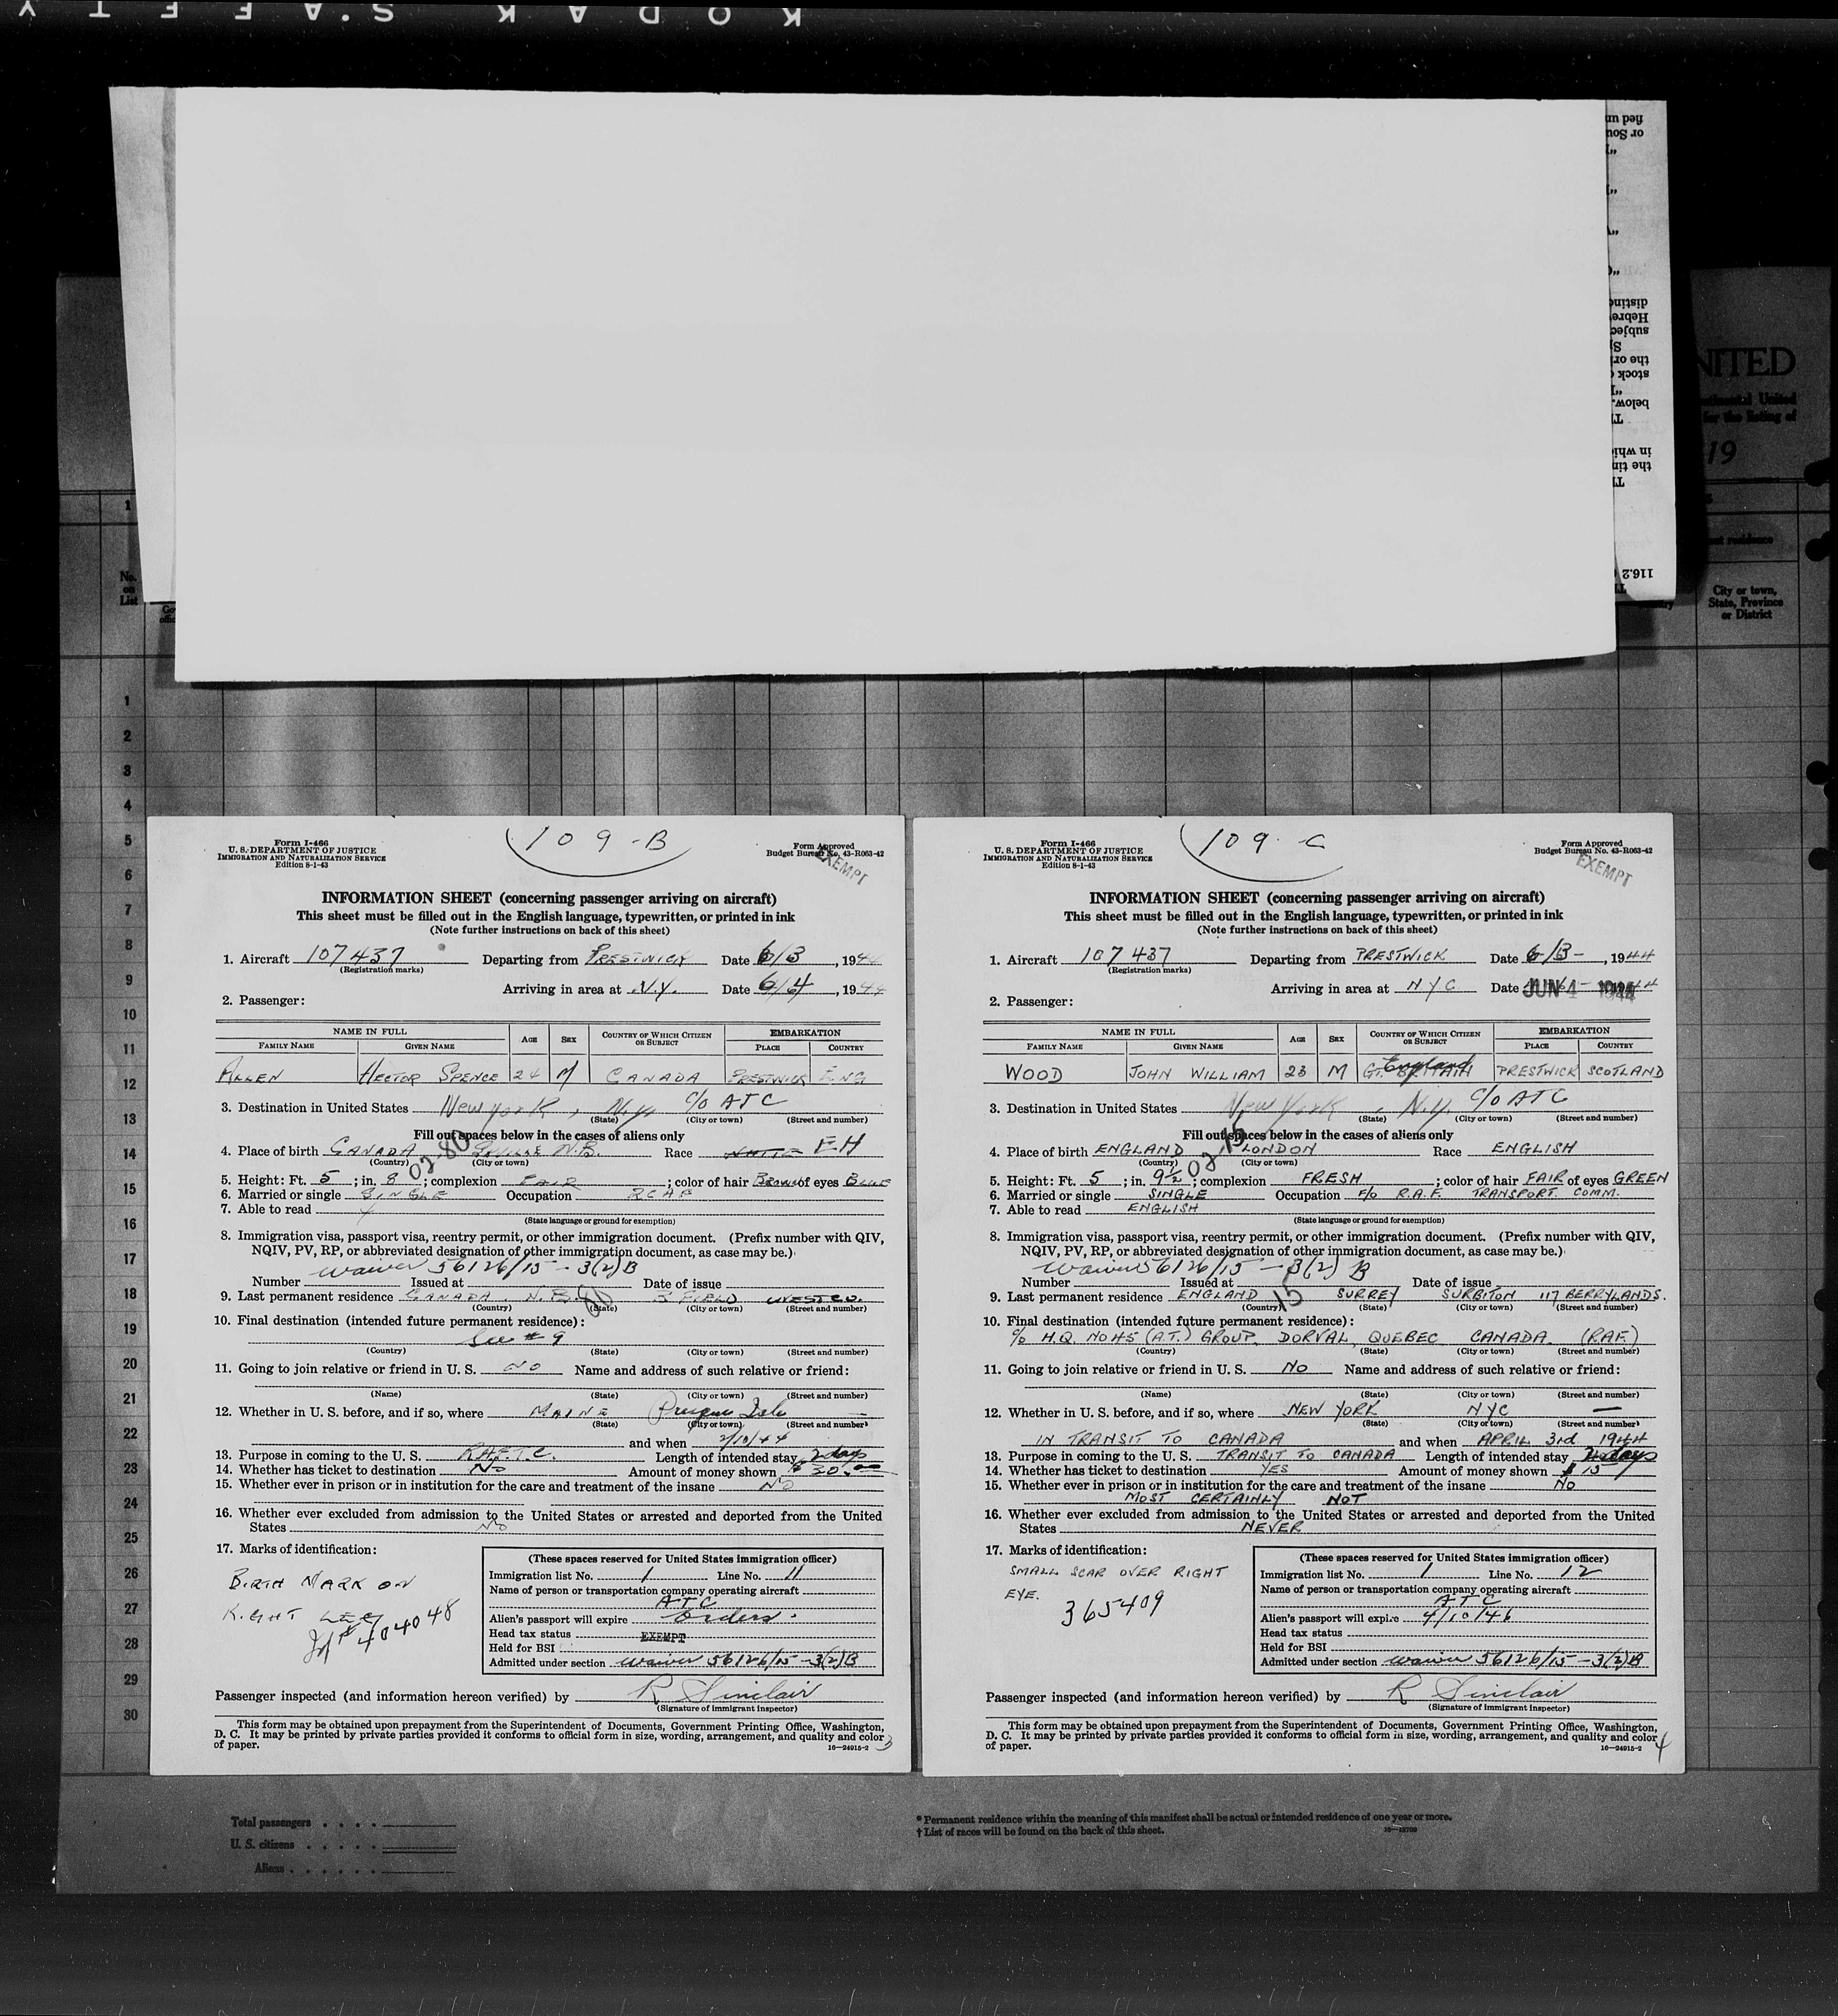 KODAK S.AFETY
fied un
or Sou
distinc
Hebrew
subjec
the ori
stock
below.
in whic
the tim
116.2
NITED
19
No. on List
City or town, State, Province or District
1
2
3
4
5
6
7
8
9
10
11
12
13
14
15
16
17
18
19
20
21
22
23
24
25
26
27
28
29
30
109-B
Form I-466
U. S. DEPARTMENT OF JUSTICE
IMMIGRATION AND NATURALIZATION SERVICE
Edition 8-1-43
Form Approved
Budget Bureau No. 43-R063-42
EXEMPT
INFORMATION SHEET (concerning passenger arriving on aircraft)
This sheet must be filled out in the English language, typewritten, or printed in ink
(Note further instructions on back of this sheet)
1. Aircraft 107437 Departing from PRESTWICK Date 6/3, 1944
(Registration marks)
Arriving in area at N.Y. Date 6/4, 1944
2. Passenger:
NAME IN FULL AGE SEX COUNTRY OF WHICH CITIZEN OR SUBJECT EMBARKATION
FAMILY NAME GIVEN NAME PLACE COUNTRY
ALLEN HECTOR SPENCE 24 M CANADA PRESTWICK ENG
3. Destination in United States New York, N.Y. C/O ATC
(State) (City or town) (Street and number)
Fill out spaces below in the cases of aliens only
4. Place of birth CANADA N.B. Race WHITE EH
(Country) (City or town)
02-80
5. Height: Ft. 5; in. 8; complexion FAIR; color of hair BROWN of eyes BLUE
6. Married or single SINGLE Occupation RCAF
7. Able to read
(State language or ground for exemption)
8. Immigration visa, passport visa, reentry permit, or other immigration document. (Prefix number with QIV,
NQIV, PV, RP, or abbreviated designation of other immigration document, as case may be.)
Waiver 56126/15-3(2)B
Number Issued at Date of issue
9. Last permanent residence CANADA. N.B. B'FIELD WEST CO.
(Country) (State) (City or town) (Street and number)
10. Final destination (intended future permanent residence):
See #9
(Country) (State) (City or town) (Street and number)
11. Going to join relative or friend in U. S. NO Name and address of such relative or friend:
(Name) (State) (City or town) (Street and number)
12. Whether in U. S. before, and if so, where MAINE Presque Isle
(State) (City or town) (Street and number)
and when 2/10/44
13. Purpose in coming to the U. S. R.A.F.T.C. Length of intended stay 2 days
14. Whether has ticket to destination NO Amount of money shown $30.00
15. Whether ever in prison or in institution for the care and treatment of the insane NO
16. Whether ever excluded from admission to the United States or arrested and deported from the United
States NO
17. Marks of identification:
BIRTH MARK ON
RIGHT LEG
404048
(These spaces reserved for United States immigration officer)
Immigration list No. 1 Line No. 11
Name of person or transportation company operating aircraft
ATC
Alien's passport will expire Orders.
Head tax status EXEMPT
Held for BSI
Admitted under section Waiver 56126/15-3(2)B
Passenger inspected (and information hereon verified) by R Sinclair
(Signature of immigrant inspector)
This form may be obtained upon prepayment from the Superintendent of Documents, Government Printing Office, Washington,
D. C. It may be printed by private parties provided it conforms to official form in size, wording, arrangement, and quality and color
of paper.
16—24915-2
3
109-C
Form I-466
U. S. DEPARTMENT OF JUSTICE
IMMIGRATION AND NATURALIZATION SERVICE
Edition 8-1-43
Form Approved
Budget Bureau No. 43-R063-42
EXEMPT
INFORMATION SHEET (concerning passenger arriving on aircraft)
This sheet must be filled out in the English language, typewritten, or printed in ink
(Note further instructions on back of this sheet)
1. Aircraft 107437 Departing from PRESTWICK Date 6/3-, 1944
(Registration marks)
Arriving in area at NYC Date JUN 4 1944
2. Passenger:
NAME IN FULL AGE SEX COUNTRY OF WHICH CITIZEN OR SUBJECT EMBARKATION
FAMILY NAME GIVEN NAME PLACE COUNTRY
WOOD JOHN WILLIAM 23 M GT. BRITAIN England PRESTWICK SCOTLAND
3. Destination in United States New York, N.Y. C/O ATC
(State) (City or town) (Street and number)
Fill out spaces below in the cases of aliens only
4. Place of birth ENGLAND LONDON Race ENGLISH
(Country) (City or town)
02-15
5. Height: Ft. 5; in. 9½; complexion FRESH; color of hair FAIR of eyes GREEN
6. Married or single SINGLE Occupation F/O R.A.F. TRANSPORT COMM.
7. Able to read ENGLISH
(State language or ground for exemption)
8. Immigration visa, passport visa, reentry permit, or other immigration document. (Prefix number with QIV,
NQIV, PV, RP, or abbreviated designation of other immigration document, as case may be.)
Waiver 56126/15-3(2)B
Number Issued at Date of issue
9. Last permanent residence ENGLAND 15 SURREY SURBITON 117 BERRYLANDS.
(Country) (State) (City or town) (Street and number)
10. Final destination (intended future permanent residence):
C/o H.Q. NO45 (A.T.) GROUP. DORVAL, QUEBEC CANADA. (RAF.)
(Country) (State) (City or town) (Street and number)
11. Going to join relative or friend in U. S. NO Name and address of such relative or friend:
(Name) (State) (City or town) (Street and number)
12. Whether in U. S. before, and if so, where NEW YORK NYC —
(State) (City or town) (Street and number)
IN TRANSIT TO CANADA and when APRIL 3rd 1944
13. Purpose in coming to the U. S. TRANSIT TO CANADA Length of intended stay 2 days
14. Whether has ticket to destination YES Amount of money shown $15
15. Whether ever in prison or in institution for the care and treatment of the insane NO
MOST CERTAINLY NOT
16. Whether ever excluded from admission to the United States or arrested and deported from the United
States NEVER
17. Marks of identification:
SMALL SCAR OVER RIGHT
EYE.
365409
(These spaces reserved for United States immigration officer)
Immigration list No. 1 Line No. 12
Name of person or transportation company operating aircraft
ATC
Alien's passport will expire 4/10/46
Head tax status
Held for BSI
Admitted under section Waiver 56126/15-3(2)B
Passenger inspected (and information hereon verified) by R Sinclair
(Signature of immigrant inspector)
This form may be obtained upon prepayment from the Superintendent of Documents, Government Printing Office, Washington,
D. C. It may be printed by private parties provided it conforms to official form in size, wording, arrangement, and quality and color
of paper.
16—24915-2
4
Total passengers . . . .
U. S. citizens . . . . .
Aliens . . . . . .
* Permanent residence within the meaning of this manifest shall be actual or intended residence of one year or more.
† List of races will be found on the back of this sheet.